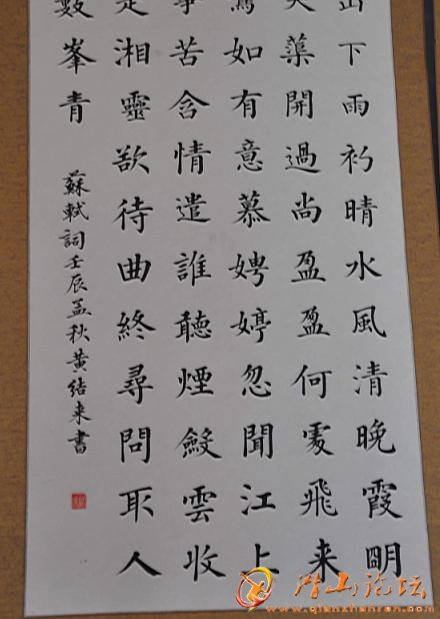 山下雨初晴水風清晚霞明
蕖開過尚盈盈何處飛来
如有意慕娉婷忽聞江上
苦含情遣誰聽煙斂雲收
是湘靈欲待曲終尋問取人
數峯青
蘇軾詞壬辰孟秋黄結来書
潜山论坛
www.qianshanren.com